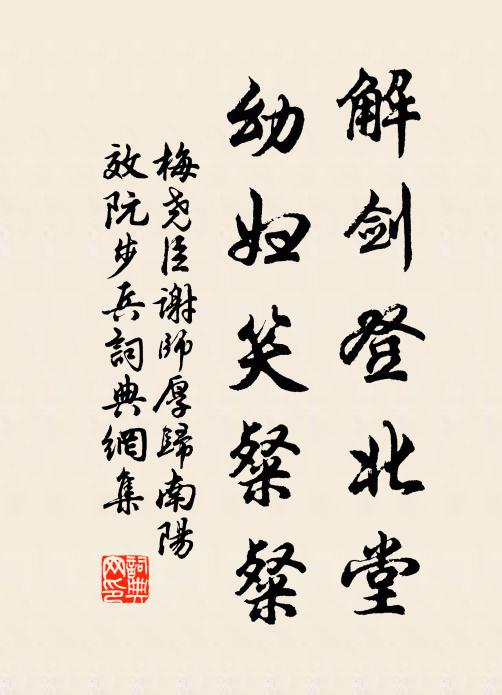 解剑登北堂
幼妇笑粲粲
梅尧臣谢师厚歸南陽
效阮步兵詞典網集
詞典网印